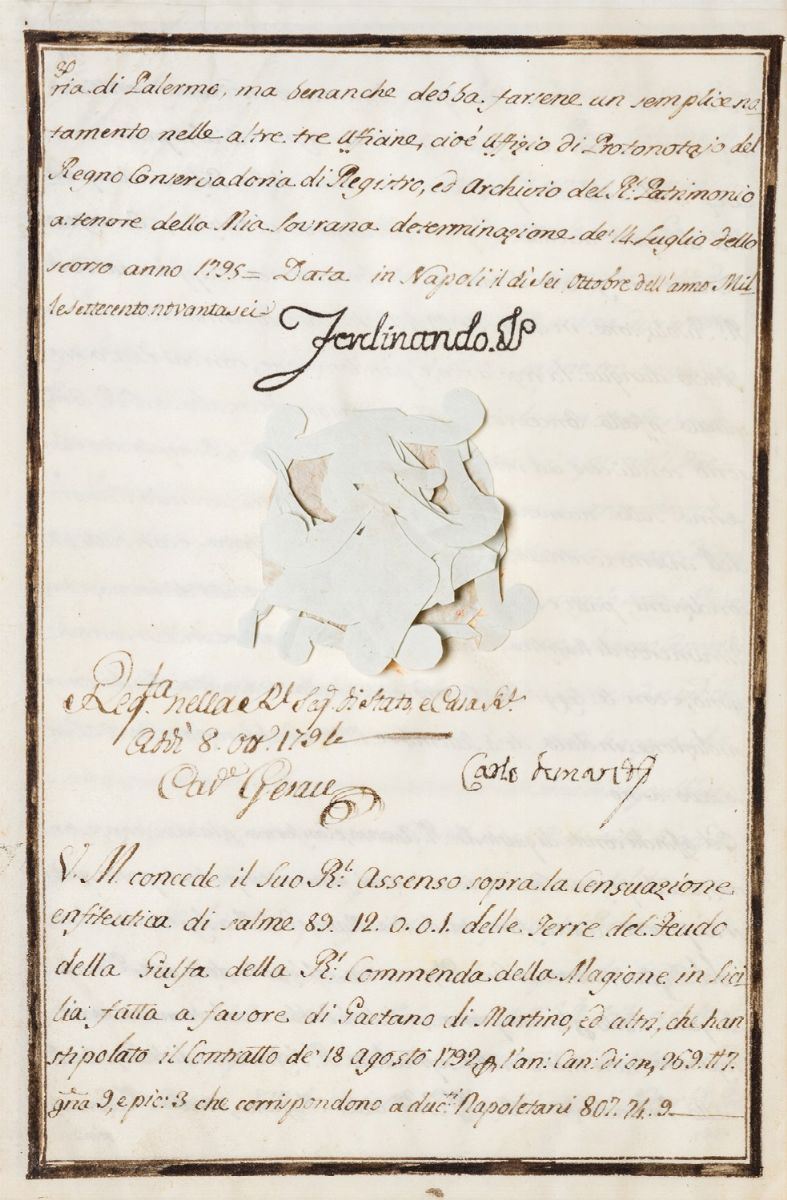 ria di Palermo, ma benanche debba farsene un semplice no
tamento nelle altre tre Uficine, cioè Ufizio di Protonotajo del
Regno Conservadoria di Registro, ed Archivio del Rl. Patrimonio
a tenore della Mia Sovrana determinazione de' 14 Luglio dello
scorso anno 1795= Data in Napoli il dì Sei Ottobre dell'anno Mil-
le Settecento novantasei
Ferdinando.
Regta. nella Rl. Seg. di Stato, e Casa Rl.
Addì 8. Ott. 1796
Cade. Gerace
Carlo
V. M. concede il Suo Rl. Assenso sopra la Censuazione
enfiteutica di salme 89. 12. 0. 0. 1. delle Terre del Feudo
della Gulfa della Rl. Commenda della Magione in Sici
lia fatta a favore di Gaetano di Martino, ed altri, che han
stipolato il Contratto de' 18 Agosto 1792 l'an: Can: di on, 269. tt 7.
gna 9, e pic: 3 che corrispondono a duc.ti Napoletani 807. 74. 9